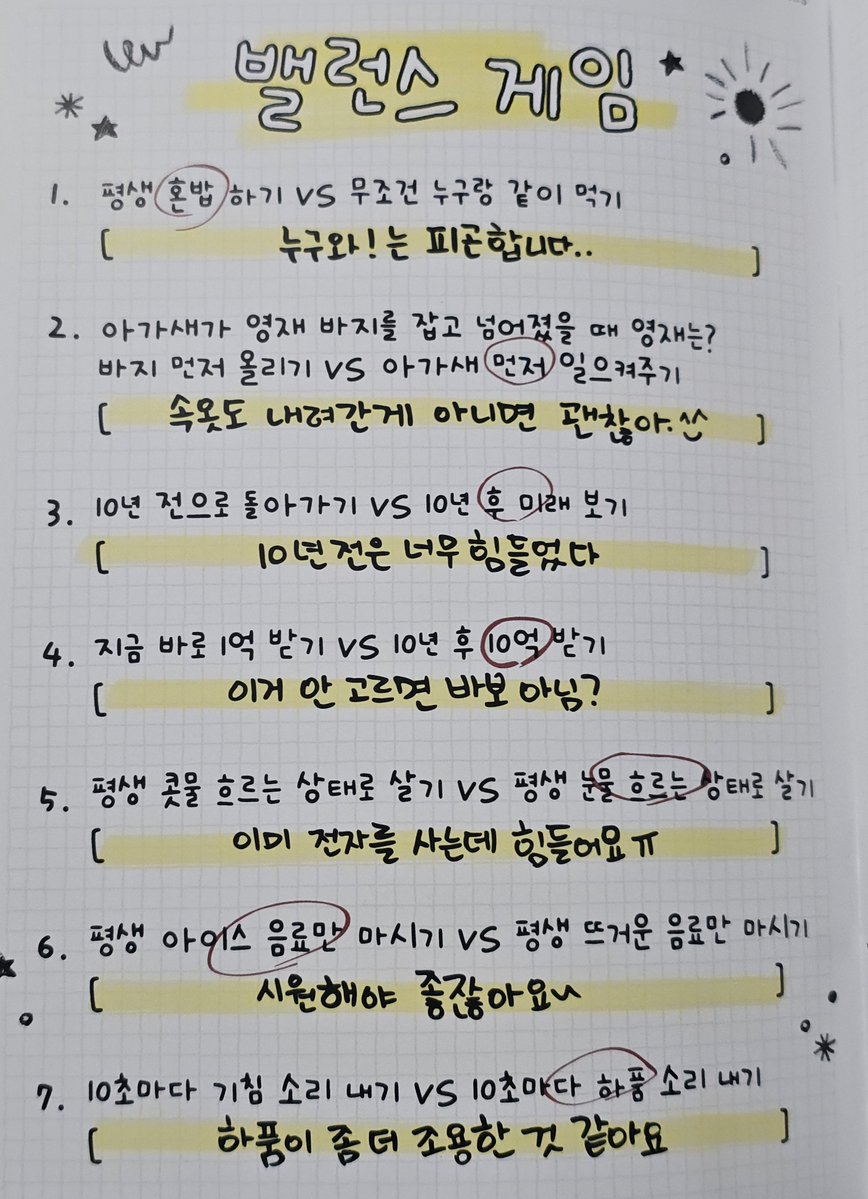 밸런스 게임
1. 평생 혼밥 하기 VS 무조건 누구랑 같이 먹기
[ 누구와! 는 피곤합니다.. ]
2. 아가새가 영재 바지를 잡고 넘어졌을 때 영재는?
바지 먼저 올리기 VS 아가새 먼저 일으켜주기
[ 속옷도 내려간게 아니면 괜찮아. ^^ ]
3. 10년 전으로 돌아가기 VS 10년 후 미래 보기
[ 10년전은 너무 힘들었다 ]
4. 지금 바로 1억 받기 VS 10년 후 10억 받기
[ 이거 안 고르면 바보 아님? ]
5. 평생 콧물 흐르는 상태로 살기 VS 평생 눈물 흐르는 상태로 살기
[ 이미 전자를 사는데 힘들어요ㅠ ]
6. 평생 아이스 음료만 마시기 VS 평생 뜨거운 음료만 마시기
[ 시원해야 좋잖아요~ ]
7. 10초마다 기침 소리 내기 VS 10초마다 하품 소리 내기
[ 하품이 좀 더 조용한 것 같아요 ]